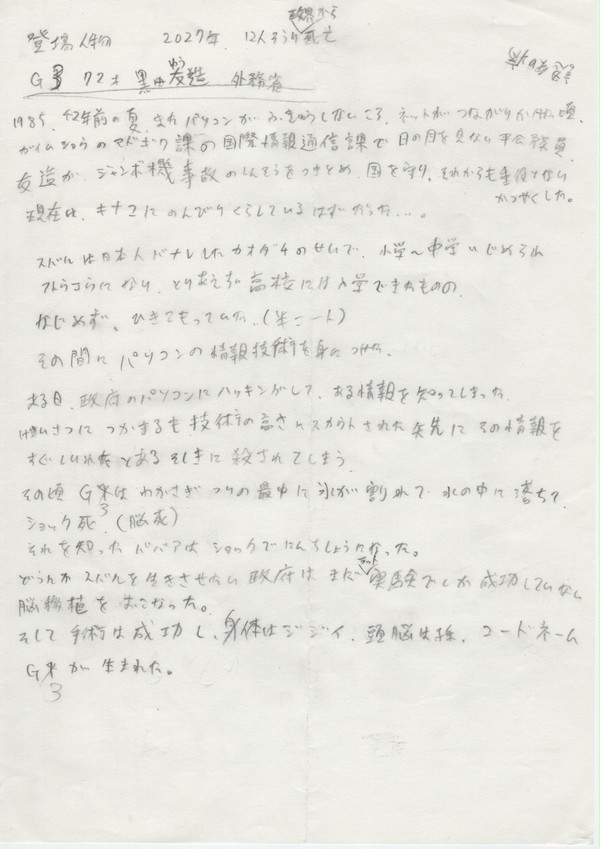 登場人物 2027年、12人そうり死亡
G3 72才 黒田友造 外務省
1985、42年前の夏、まだパソコンがふきゅうしないころ、ネットがつながりかけた頃
ガイムショウのマドギワ課の国際情報通信課で日の目を見ない平公務員、
友造が、ジャンボ機事故のしんそうをつきとめ、国を守り、それからも重役となり
かつやくした。
現在は、キナコとのんびりくらしているはずだった…。
スバルは日本人バナレしたカオダチのせいで、小学〜中学いじめられ
とりあえず高校には入学できたものの、
なじめず、ひきこもっていた、(半ニート)
その間にパソコンの情報技術を身につけた。
ある日、政府のパソコンにハッキングして、ある情報を知ってしまった
けいさつにつかまるも技術の高さにスカウトされた矢先にその情報を
とあるそしきに殺されてしまう
その頃G3はわかさぎつりの最中に氷が割れて水の中に落ちて
ショック死、(脳死)
それを知ったババアはショックでにんちしょうになった。
どうしてもスバルを生きさせたい政府はまだ実験でしか成功していない
脳移植をおこなった。
そして手術は成功し、身体はジジイ、頭脳は孫、コードネーム
G3が生まれた。